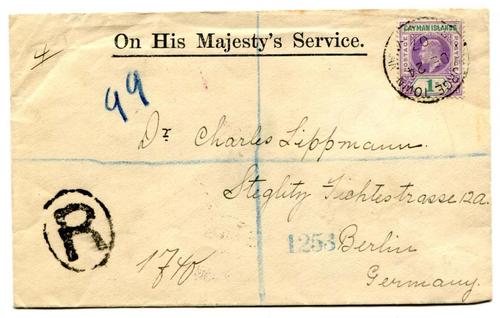 4
On His Majesty's Service.
CAYMAN ISLANDS
POSTAGE
1
99
Dr Charles Lippmann.
Steglitz Fichtestrasse 12a.
R
1253
Berlin
1740
Germany.